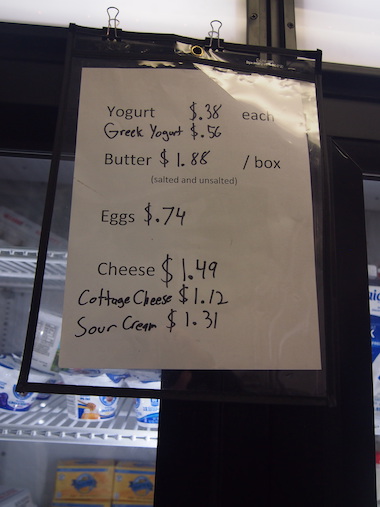 Yogurt $.38 each
Greek Yogurt $.56
Butter $1.88 / box
(salted and unsalted)
Eggs $.74
Cheese $1.49
Cottage Cheese $1.12
Sour Cream $1.31